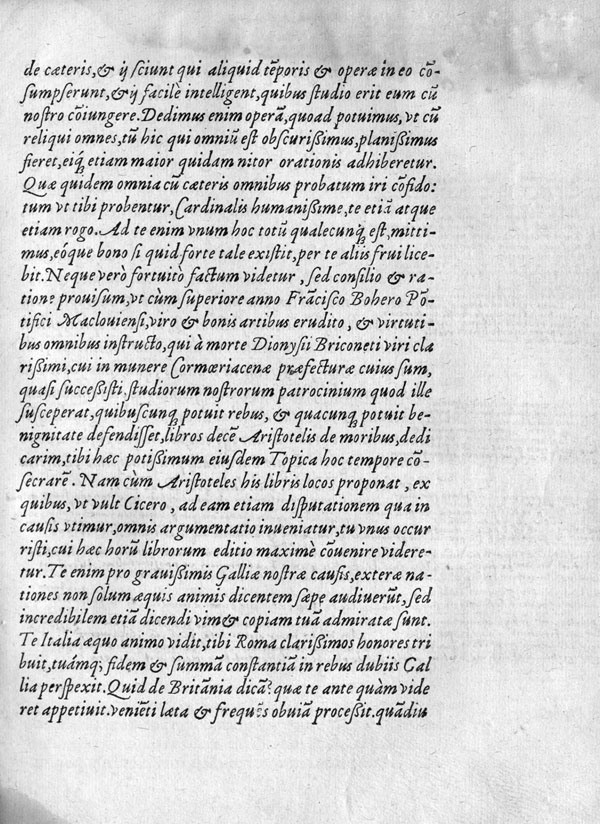 de cæteris, & ij sciunt qui aliquid tẽporis & operæ in eo cõ-
sumpserunt, & ij facilè intelligent, quibus studio erit eum cũ
nostro cõiungere. Dedimus enim operã, quoad potuimus, vt cũ
reliqui omnes, tũ hic qui omniũ est obscurissimus, planissimus
fieret, eiq́; etiam maior quidam nitor orationis adhiberetur.
Quæ quidem omnia cũ cæteris omnibus probatum iri cõfido:
tum vt tibi probentur, Cardinalis humanissime, te etiã atque
etiam rogo. Ad te enim vnum hoc totũ qualecunq́; est, mitti-
mus, eóque bono si quid forte tale existit, per te aliis frui lice-
bit. Neque verò fortuitò factum videtur, sed consilio & ra-
tione prouisum, vt cùm superiore anno Frãcisco Bohero Põ-
tifici Maclouiensi, viro & bonis artibus erudito, & virtuti-
bus omnibus instructo, qui à morte Dionysii Briconeti viri cla
rissimi, cui in munere Cormœriacenæ præfecturæ cuius sum,
quasi successisti, studiorum nostrorum patrocinium quod ille
susceperat, quibuscunq; potuit rebus, & quacunq; potuit be-
nignitate defendisset, libros decẽ Aristotelis de moribus, dedi
carim, tibi hæc potissimum eiusdem Topica hoc tempore cõ-
secrarẽ. Nam cùm Aristoteles his libris locos proponat, ex
quibus, vt vult Cicero, ad eam etiam disputationem qua in
causis vtimur, omnis argumentatio inueniatur, tu vnus occur
risti, cui hæc horũ librorum editio maximè cõuenire videre-
tur. Te enim pro grauissimis Galliæ nostræ causis, exteræ na-
tiones non solum æquis animis dicentem sæpe audiuerũt, sed
incredibilem etiã dicendi vim & copiam tuã admiratæ sunt.
Te Italia æquo animo vidit, tibi Roma clarissimos honores tri
buit, tuámq; fidem & summã constantiã in rebus dubiis Gal
lia perspexit. Quid de Britãnia dicã? quæ te ante quàm vide
ret appetiuit. veniẽti læta & frequẽs obuiã processit. quãdiu